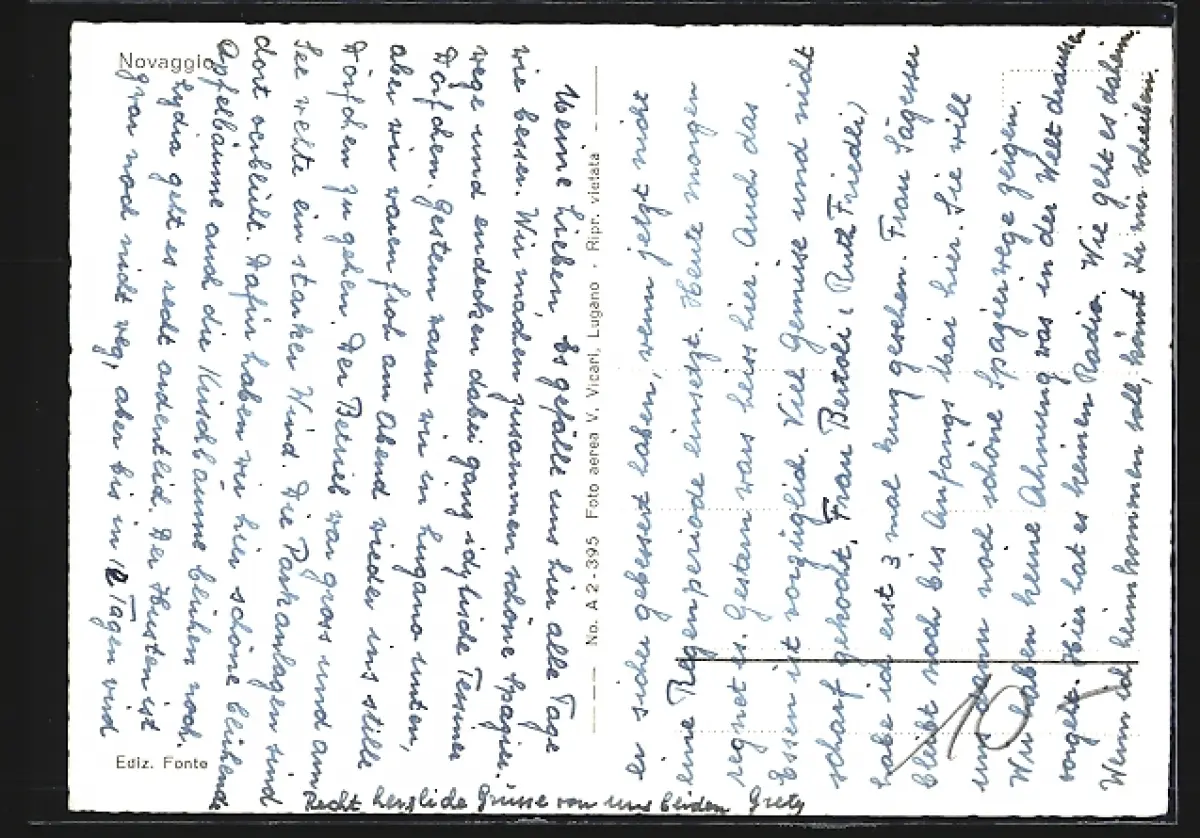 Novaggio
Meine Lieben, Es gefällt uns hier alle Tage
wie besser. Wir machen zusammen schöne Spazier-
wege und endecken dabei ganz idyllische Tessiner
Dörfchen. Gestern waren wir in Lugano unten,
aber wir waren froh am Abend wieder ins stille
Dörfchen zu gehen. Der Betrieb war gross und am
See wehte ein starker Wind. Die Parkanlagen sind
dort verblüht. Dafür haben wir hier schöne blühende
Apfelbäume auch die Kirschbäume blühen noch.
Lydia geht es recht ordentlich. Der Husten ist
zwar noch nicht weg, aber bis in Tagen wird
er sicher gebessert haben, wenn jetzt nicht
eine Regenperiode einsetzt. Heute morgen
regnet es. Gestern wars heiss hier. Auch das
Essen ist vorzüglich. Viel Gemüse und nicht
scharf gekocht. Frau Bertoli (Ruth Friedli)
habe ich erst 3 mal kurz gesehen. Frau Sägesser
bleibt noch bis Anfangs Mai hier. Sie will
uns dann noch schöne Spazierwege zeigen.
Wir haben keine Ahnung was in der Welt draussen
vorgeht. Hier hat es keinen Radio. Wie geht es daheim.
Wenn ich heimkommen soll, könnt Ihr mir schreiben.
Recht herzliche Grüsse von uns beiden Grety
No. A 2 - 395 Foto aerea V. Vicari, Lugano - Ripr. vietata
Ediz. Fonte
10